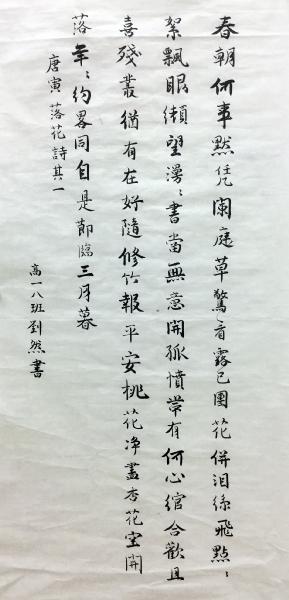 春朝何事默凭闌庭草驚看露已團花併淚絲飛點〻
絮飄眼纈望漫〻書當無意開孤憤帶有何心綰合歡且
喜殘叢猶有在好隨修竹報平安桃花净盡杏花空開
落年〻約畧同自是節臨三月暮
唐寅落花詩其一
高一八班劉然書